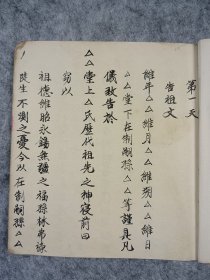 第一天
告祖文
維年△△維月△△維朔△△維日
△△堂下在制嗣孫△△等謹具凡
儀敢告於
△△堂上△氏歷代祖先之神寢前曰
竊以
祖德維昭永錫無疆之福孫
陡生不測之憂今以在制嗣孫△△